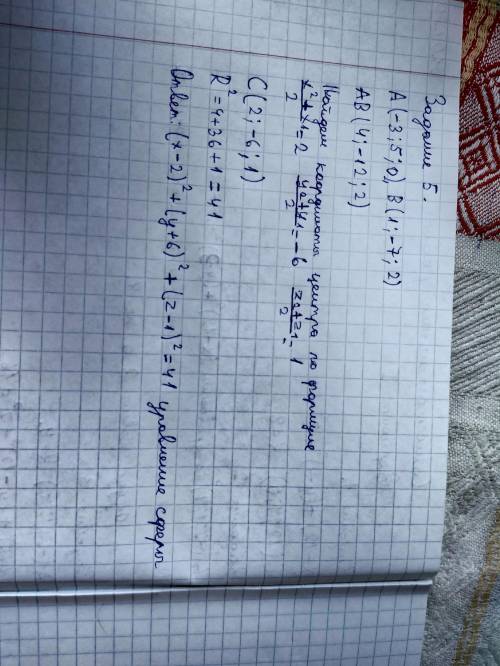 Задание 5.
A(-3;5;0) B(1;-7;2)
AB(4;-12;2)
Найдем координаты центра по формуле
x2+x1/2=2 y2+y1/2=-6 z2+z1/2=1
C(2;-6;1)
R²=4+36+1=41
Ответ: (x-2)²+(y+6)²+(z-1)²=41 уравнение сферы